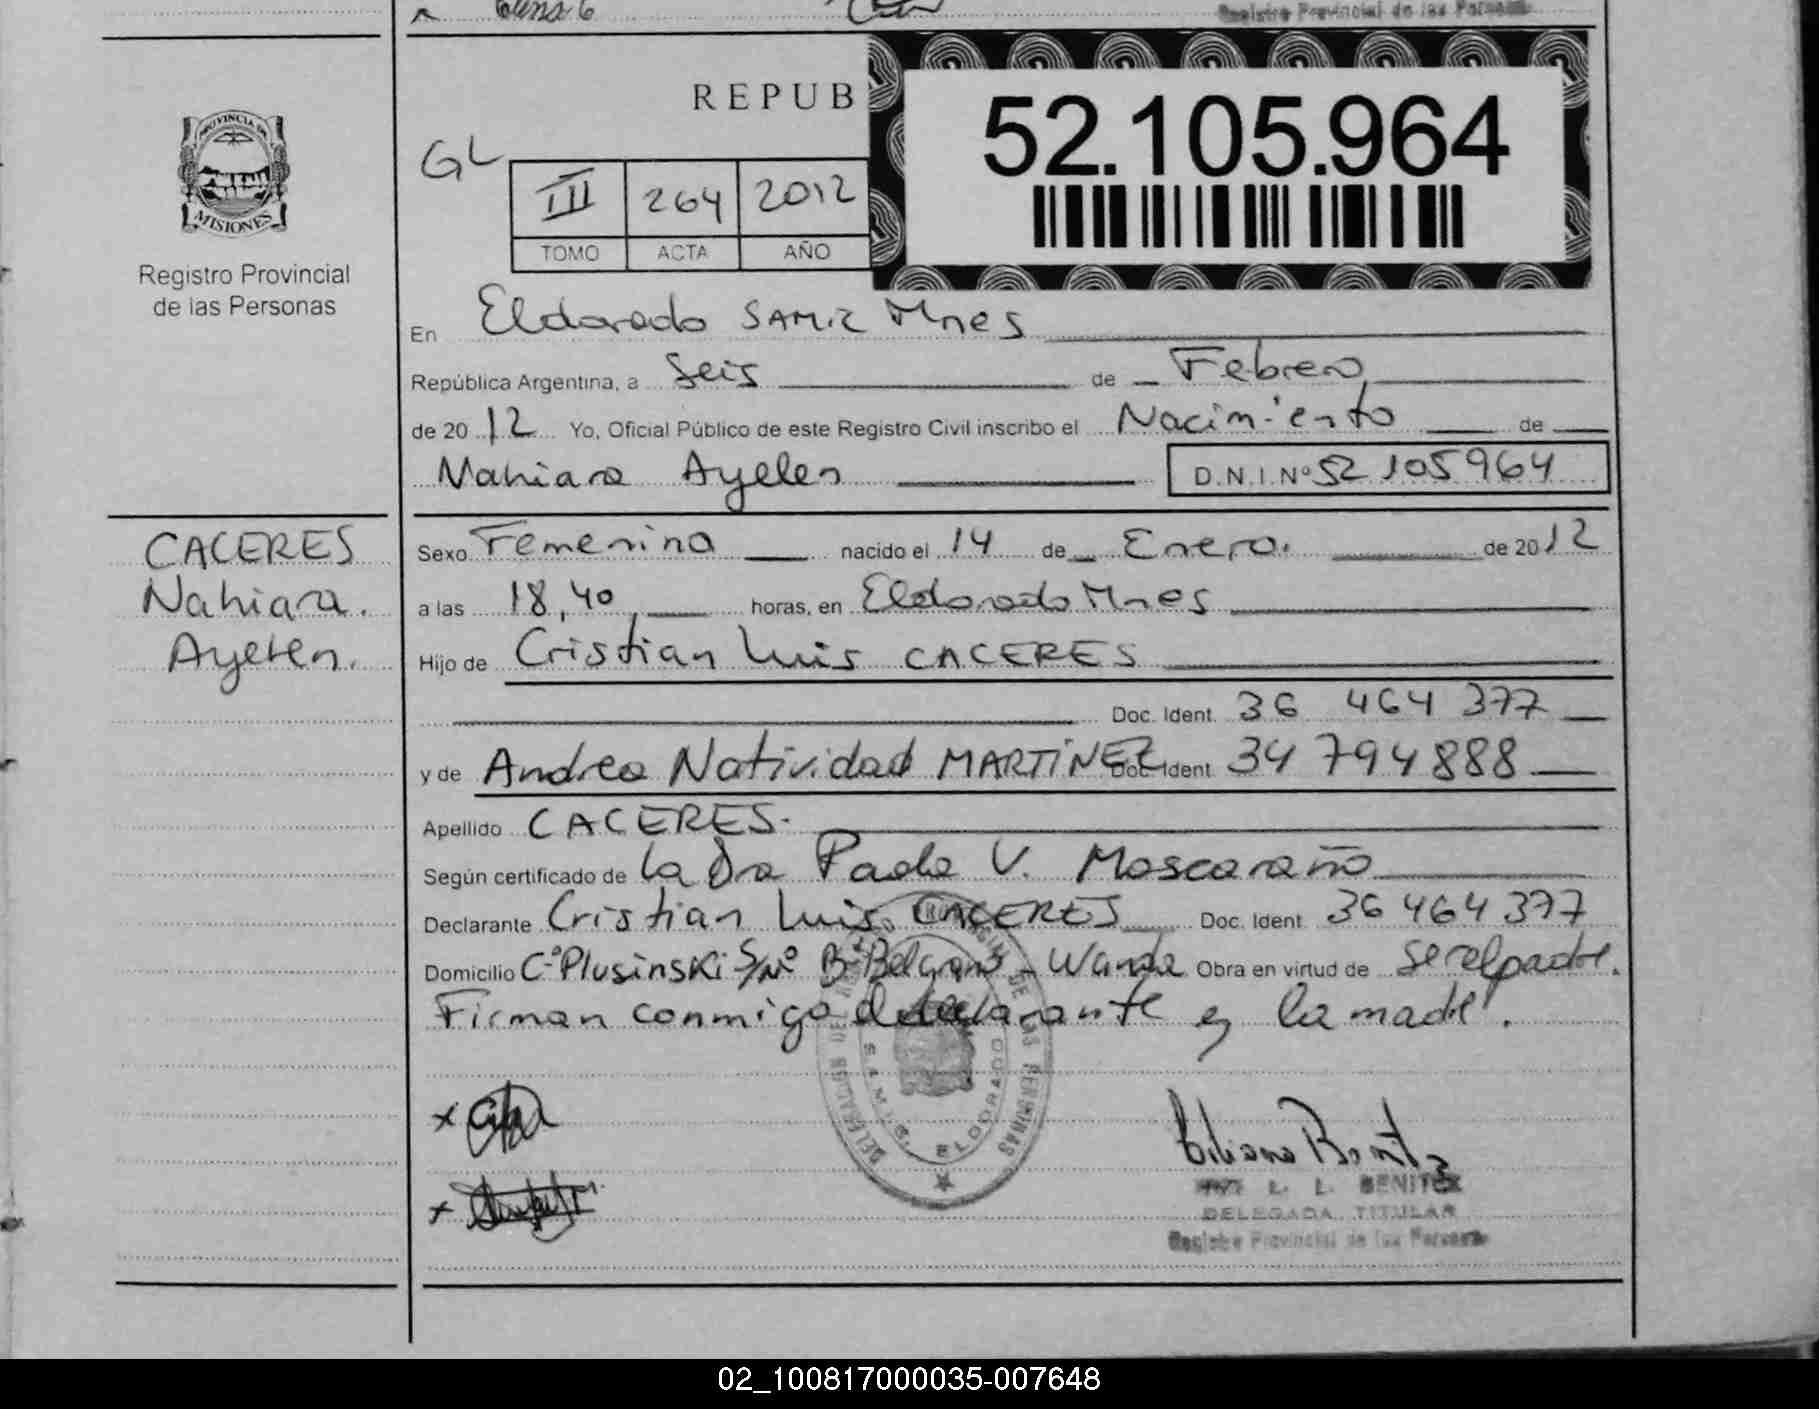 Registro Provincial de las Personas
PROVINCIA DE
MISIONES
Registro Provincial
de las Personas
REPUB
52.105.964
GL
III 264 2012
TOMO ACTA AÑO
En Eldorado SAMIC Mnes
República Argentina, a Seis de Febrero
de 2012 Yo, Oficial Público de este Registro Civil inscribo el Nacimiento de
Nahiara Ayelen D.N.I.Nº 52 105 964
CACERES
Nahiara.
Ayelen.
Sexo Femenina nacido el 14 de Enero. de 2012
a las 18,40 horas, en Eldorado Mnes
Hijo de Cristian Luis CACERES
Doc. Ident. 36 464 377
y de Andrea Natividad MARTÍNEZ Doc. Ident 34 794 888
Apellido CACERES.
Según certificado de la Dra Paola V. Moscaraño
Declarante Cristian Luis CACERES Doc. Ident. 36 464 377
Domicilio C° Plusinski S/Nº Bº Belgrano - Wanda Obra en virtud de ser el padre.
Firman conmigo el declarante y la madre.
DELEGACION DEL REGISTRO PROVINCIAL DE LAS PERSONAS
S.A.M.I.C. ELDORADO
Liliana Benitez
L. L. BENITEZ
DELEGADA TITULAR
Registro Provincial de las Personas
02_100817000035-007648